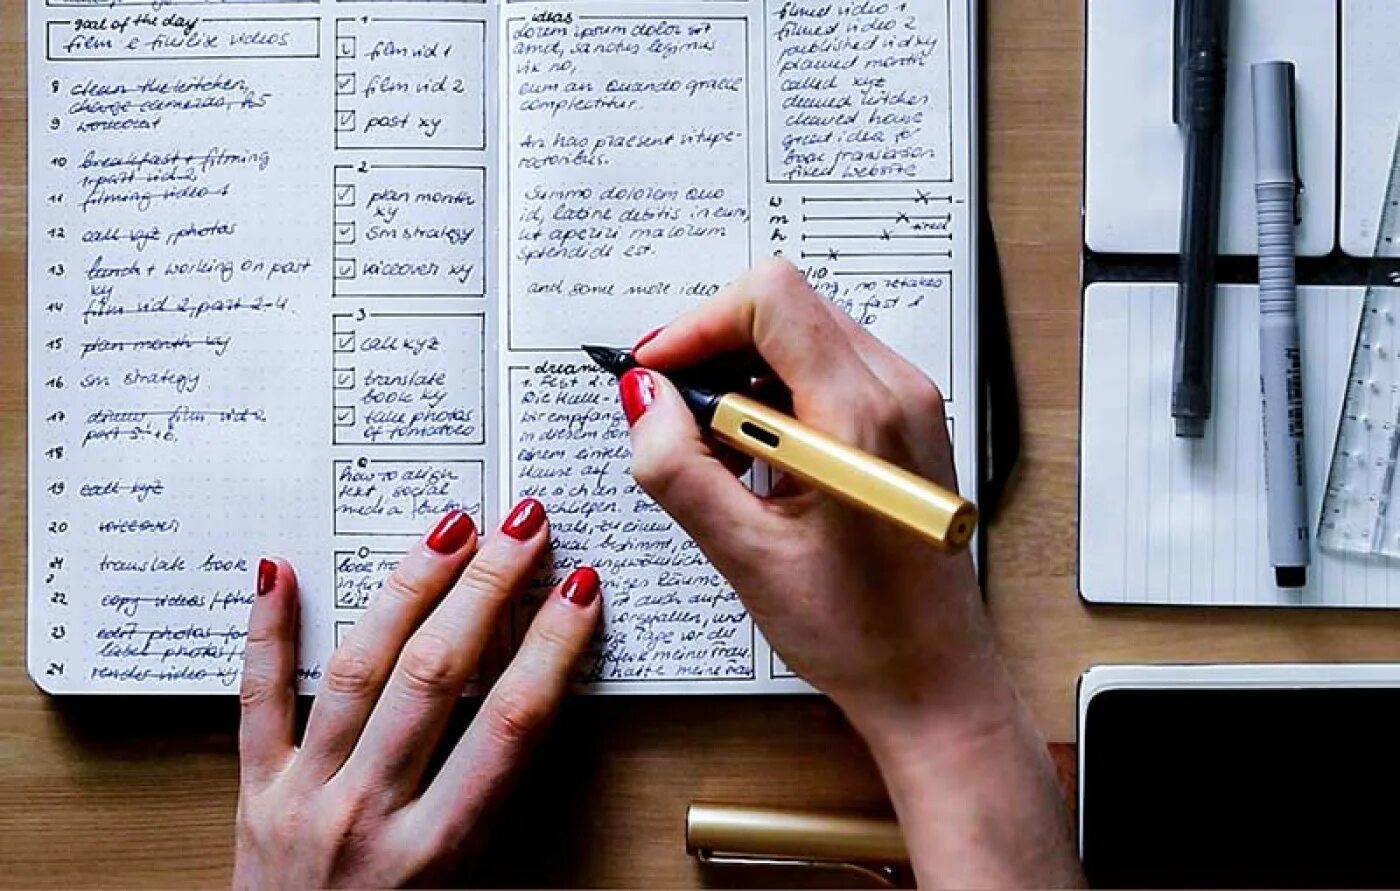 goal of the day
film & finilise videos
8 clean the kitchen,
charge cameras,
9 workout
10 breakfast + filming
part vid 2
11 filming video 1
12 call xyz, photos
13 lunch + working on post
xy
14 film vid 2, part 2-4.
15 plan month xy
16 sm strategy
17 dinner, film vid 2
part 5+6.
18
19 call xyz
20 voiceover
21 translate book
22 copy videos /
23 edit photos for
label photos /
24 render video xy
1
film vid 1
film vid 2
post xy
2
plan month
xy
sm strategy
voiceover xy
3
call xyz
translate
book xy
take photos
of tomatoes
how to align
text, social
media buttons
book
ideas
lorem ipsum dolor sit
amet, sanctus legimus
vix no,
eum an quando graece
complectitur.
An has praesent vitupe-
ratoribus.
Summo dolorem quo
id, latine debitis in eum,
ut aperiri malorum
splendide est.
and some more ideas
dreams
1. Fest
Die Halle
wir empfangen
in diesem
einem
Hause auf
die
schließen.
mals, zu einem
bestimmt,
die ungewöhnlich
Räume
ist auch auf
vorgefallen, und
Tage vor die
meine Frau.
hatte meine Frau
filmed video 1
filmed video 2
published vid xy
planned month
called xyz
cleaned kitchen
cleaned house
great idea for
book translation
fixed website
w
m
tired
h
/10
no retakes
fast &